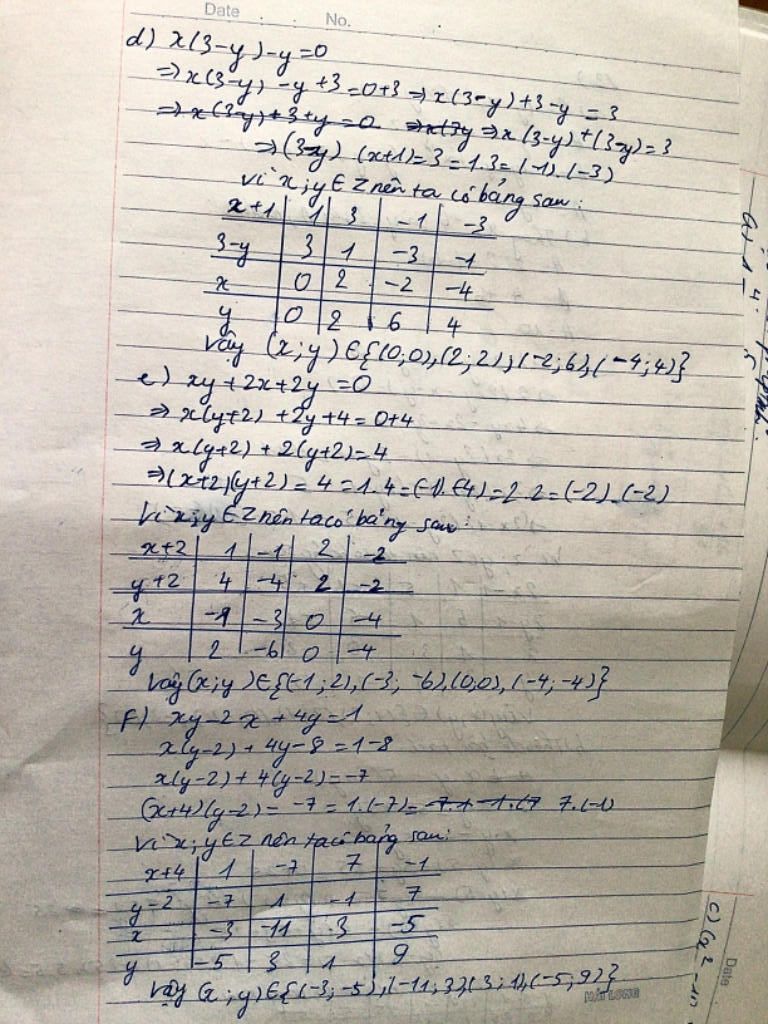 Date No.
d) x(3-y)-y=0
⇒x(3-y) -y+3=0+3⇒x(3-y)+3-y=3
⇒x(3-y)+3+y=0 ⇒x(3y ⇒x(3-y)+(3-y)=3
⇒(3-y) (x+1)=3=1.3=(-1).(-3)
Vì x;y∈Z nên ta có bảng sau:
x+1 1 3 -1 -3
3-y 3 1 -3 -1
x 0 2 -2 -4
y 0 2 6 4
Vậy (x;y)∈{(0;0),(2;2),(-2;6),(-4;4)}
e) xy+2x+2y=0
⇒x(y+2)+2y+4=0+4
⇒x(y+2)+2(y+2)=4
⇒(x+2)(y+2)=4=1.4=(-1).(-4)=2.2=(-2).(-2)
Vì x;y∈Z nên ta có bảng sau:
x+2 1 -1 2 -2
y+2 4 -4 2 -2
x -1 -3 0 -4
y 2 -6 0 -4
Vậy (x;y)∈{(-1;2),(-3;-6),(0;0),(-4;-4)}
f) xy-2x+4y=1
x(y-2)+4y-8=1-8
x(y-2)+4(y-2)=-7
(x+4)(y-2)=-7=1.(-7)=-7.1 -1.(7 7.(-1)
Vì x;y∈Z nên ta có bảng sau:
x+4 1 -7 7 -1
y-2 -7 1 -1 7
x -3 -11 3 -5
y -5 3 1 9
Vậy (x;y)∈{(-3;-5),(-11;3),(3;1),(-5;9)}
HẢI LONG
Date